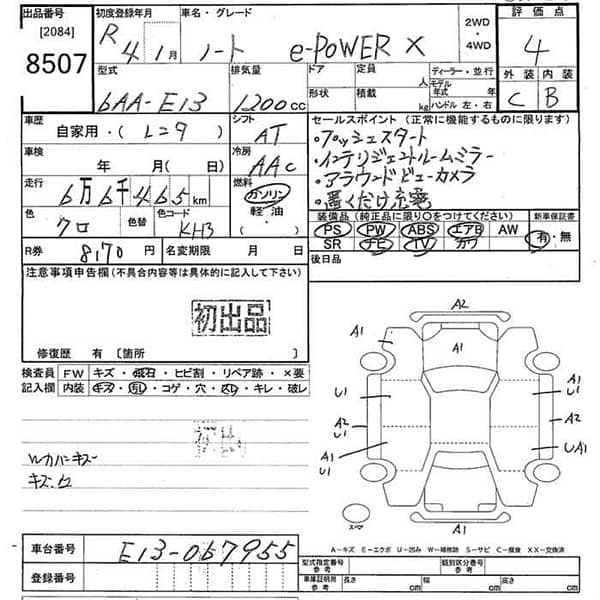 出品番号 初度登録年月 車名・グレード 2WD・4WD 評価点
[2084] R 4年 1月 ノート e-POWER X 4
8507 型式 排気量 ドア 定員 人 ディーラー・並行 外装 内装
6AA-E13 1200cc 形状 積載 kg モデル年式 年 ハンドル 左・右 C B
車歴 シフト セールスポイント (正常に機能するものに限ります)
自家用・(レンタ) AT ・プッシュスタート
車検 冷房 ・インテリジェントルームミラー
年 月(日) AAC ・アラウンドビューカメラ
走行 6万6千465km 燃料 ガソリン 軽油・( ) ・置くだけ充電
色 色替 色コード 装備品 (純正品に限り○をつけてください) 新車保証書
クロ KH3 PS PW ABS エアB AW 有・無
R券 8,170円 名変期限 月 日 SR ナビ TV カワ
注意事項申告欄(不具合内容等は具体的に記入して下さい) 後日品
初出品
修復歴 有 〔箇所 〕
検査員 FW キズ・飛石・ヒビ割・リペア跡・×要
記入欄 内装 コゲ・穴・キレ・破レ
A2
A1 A1
U1 A1 U1
A2 U1 A2
A1 U1 UA1
スペア A1
A-キズ E-エクボ U-凹み W-補修跡 S-サビ C-腐食 XX-交換済
車台番号 E13-067955
登録番号
型式指定番号 参考 類別区分番号 参考
車庫証明用 参考 長さ cm 幅 cm 高さ cm